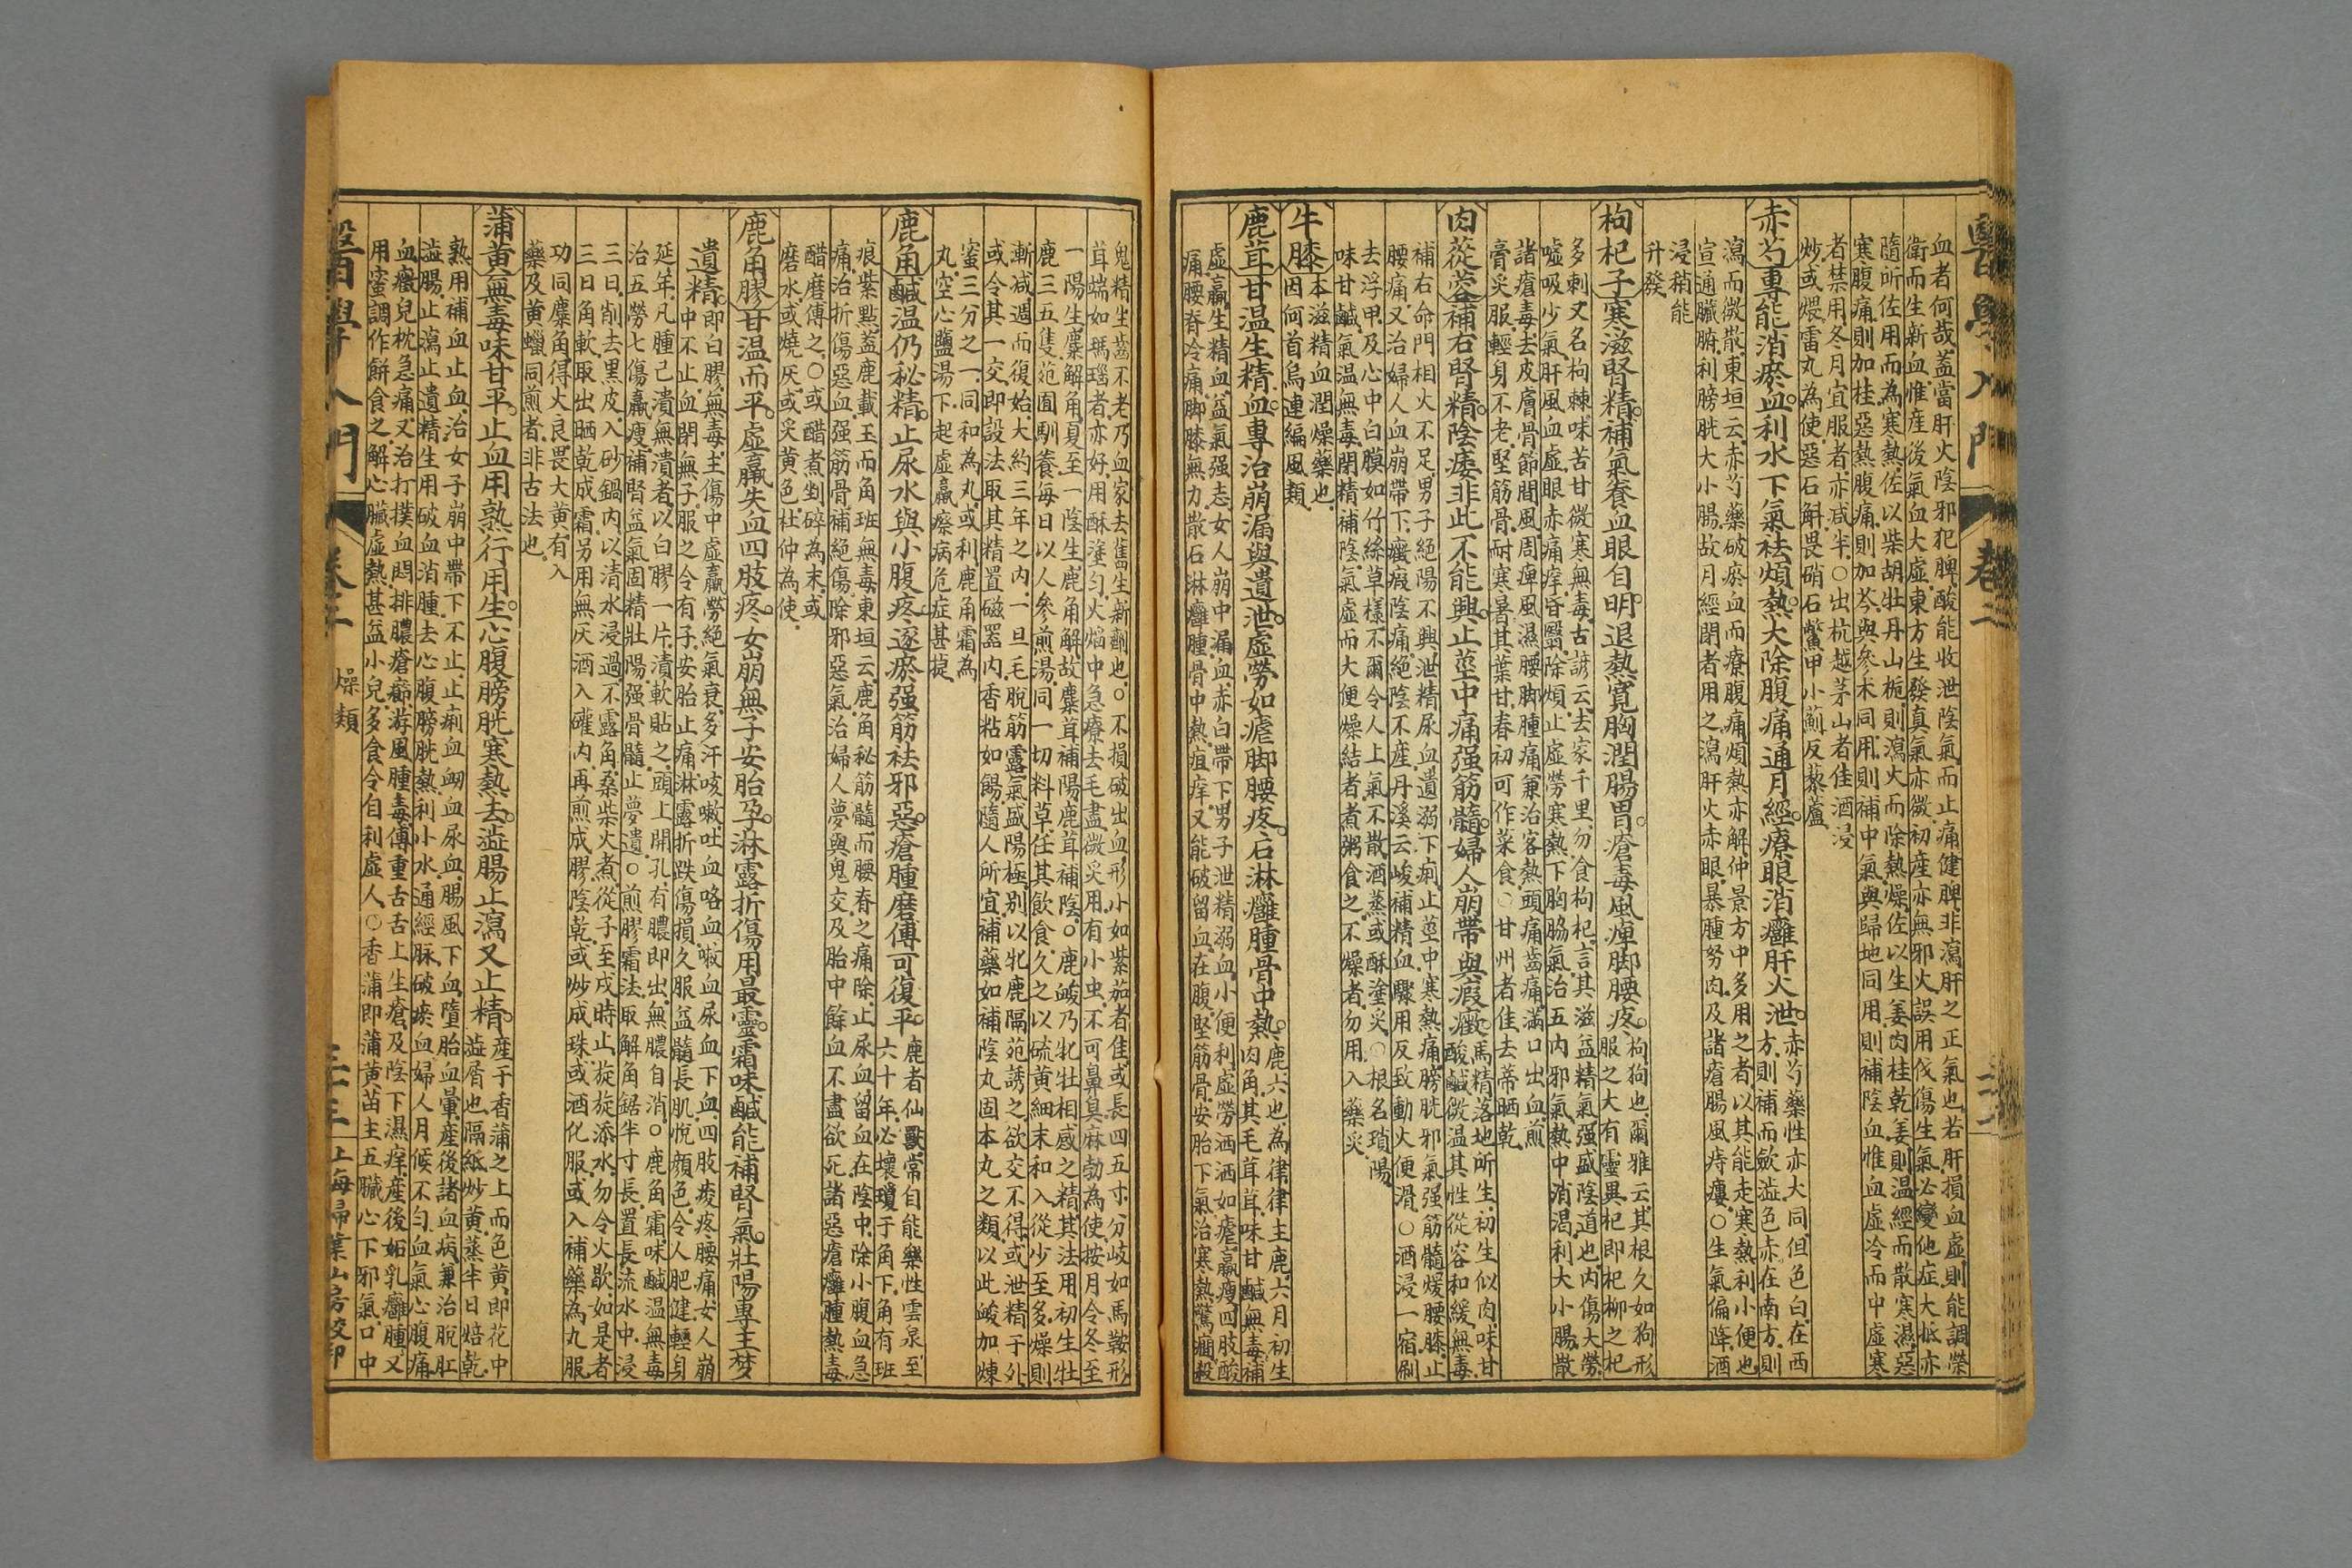 醫學入門 卷二
血者何哉蓋當肝火陰邪犯脾酸能收泄陰氣而止痛健脾非瀉肝之正氣也若肝損血虛則能調榮
衛而生新血惟產後氣血大虛東方生發真氣亦微初產亦無邪火誤用伐傷生氣必變他症大抵亦
隨所佐用而為寒熱佐以柴胡牡丹山梔則瀉火而除熱燥佐以生姜肉桂乾姜則溫經而散寒濕惡
寒腹痛則加桂惡熱腹痛則加芩與參朮同用則補中氣與歸地同用則補陰血惟血虛冷而中虛寒
者禁用冬月宜服者亦減半○出杭越茅山者佳酒浸
炒或煨雷丸為使惡石斛畏硝石鱉甲小薊反藜蘆
赤芍專能消瘀血利水下氣袪煩熱大除腹痛通月經療眼消癰肝火泄
赤芍藥性亦大同但色白在西
方則補而斂澁色赤在南方則
瀉而微散東垣云赤芍藥破瘀血而療腹痛煩熱亦解仲景方中多用之者以其能走寒熱利小便也
宣通臟腑利膀胱大小腸故月經閉者用之瀉肝火赤眼暴腫努肉及諸瘡腸風痔瘻○生氣偏降酒
浸稍能
升發
枸杞子寒滋腎精補氣養血眼自明退熱寬胸潤腸胃瘡毒風痺脚腰疼
枸狗也爾雅云其根久如狗形
服之大有靈異杞即杞柳之杞
多刺又名枸棘味苦甘微寒無毒古諺云去家千里勿食枸杞言其滋益精氣强盛陰道也內傷大勞
嘘吸少氣肝風血虛眼赤痛痒昏翳除煩止虛勞寒熱下胸脇氣治五內邪氣熱中消渴利大小腸散
諸瘡毒去皮膚骨節間風周痺風濕腰脚腫痛兼治客熱頭痛齒痛滿口出血煎
膏炙服輕身不老堅筋骨耐寒暑其葉甘春初可作菜食○甘州者佳去蒂晒乾
肉蓯蓉補右腎精陰痿非此不能興止莖中痛强筋髓婦人崩帶與瘕癥
馬精落地所生初生似肉味甘
酸鹹微溫其性從容和緩無毒
補右命門相火不足男子絕陽不興泄精尿血遺溺下痢止莖中寒熱痛膀胱邪氣强筋髓煖腰膝止
腰痛又治婦人血崩帶下癥瘕陰痛絕陰不產丹溪云峻補精血驟用反致動火便滑○酒浸一宿刷
去浮甲及心中白膜如竹絲草樣不爾令人上氣不散酒蒸或酥塗炙○根名瑣陽
味甘鹹氣溫無毒閉精補陰氣虛而大便燥結者煮粥食之不燥者勿用入藥炙
牛膝本滋精血潤燥藥也
因何首烏連編風類
鹿茸甘溫生精血專治崩漏與遺泄虛勞如瘧脚腰疼石淋癰腫骨中熱
鹿六也為律律主鹿六月初生
肉角其毛茸茸味甘鹹無毒補
虛羸生精血益氣强志女人崩中漏血赤白帶下男子泄精溺血小便利虛勞洒洒如瘧羸瘦四肢酸
痛腰脊冷痛脚膝無力散石淋癰腫骨中熱疽痒又能破留血在腹堅筋骨安胎下氣治寒熱驚癎殺
鬼精生齒不老乃血家去舊生新劑也○不損破出血形小如紫茄者佳或長四五寸分岐如馬鞍形
茸端如瑪瑙者亦好用酥塗勻火焰中急療去毛盡微炙用有小虫不可鼻臭麻勃為使按月令冬至
一陽生麋解角夏至一陰生鹿角解故麋茸補陽鹿茸補陰○鹿峻乃牝牡相感之精其法用初生牡
鹿三五隻苑囿馴養每日以人參煎湯同一切料草任其飲食久之以硫黃細末和入從少至多燥則
漸減週而復始大約三年之內一旦毛脫筋露氣盛陽極別以牝鹿隔苑誘之欲交不得或泄精于外
或令其一交即設法取其精置磁器內香粘如餳隨人所宜補藥如補陰丸固本丸之類以此峻加煉
蜜三分之一同和為丸或利鹿角霜為
丸空心鹽湯下起虛羸瘵病危症甚掟
鹿角鹹溫仍秘精止尿水與小腹疼逐瘀强筋袪邪惡瘡腫磨傅可復平
鹿者仙獸常自能樂性雲泉至
六十年必壞瓊于角下角有班
痕紫點蓋鹿載玉而角班無毒東垣云鹿角秘筋髓而腰脊之痛除止尿血留血在陰中除小腹血急
痛治折傷惡血强筋骨補絕傷除邪惡氣治婦人夢與鬼交及胎中餘血不盡欲死諸惡瘡癰腫熱毒
醋磨傅之○或醋煮剉碎為末或
磨水或燒灰或炙黃色杜仲為使
鹿角膠甘溫而平虛羸失血四肢疼女崩無子安胎孕淋露折傷用最靈霜味鹹能補腎氣壯陽專主梦
遺精
即白膠無毒主傷中虛羸勞絕氣衰多汗咳嗽吐血咯血嗽血尿血下血四肢痠疼腰痛女人崩
中不止血閉無子服之令有子安胎止痛淋露折跌傷損久服益髓長肌悅顏色令人肥健輕身
延年凡腫已潰無潰者以白膠一片漬軟貼之頭上開孔有膿即出無膿自消○鹿角霜味鹹溫無毒
治五勞七傷羸瘦補腎益氣固精壯陽强骨髓止夢遺○煎膠霜法取解角鋸半寸長置長流水中浸
三日削去黑皮入砂鍋內以清水浸過不露角桑柴火煮從子至戌時止旋旋添水勿令火歇如是者
三日角軟取出晒乾成霜另用無灰酒入確內再煎成膠陰乾或炒成珠或酒化服或入補藥為丸服
功同麋角得火良畏大黃有入
藥及黃蠟同煎者非古法也
蒲黃無毒味甘平止血用熟行用生心腹膀胱寒熱去澁腸止瀉又止精
產于香蒲之上而色黃即花中
澁屑也隔紙炒黃蒸半日焙乾
熟用補血止血治女子崩中帶下不止止痢血衂血尿血腸風下血墮胎血暈產後諸血病兼治脫肛
澁腸止瀉止遺精生用破血消腫去心腹膀胱熱利小水通經脉破瘀血婦人月候不勻血氣心腹痛
血癥兒枕急痛又治打撲血悶排膿瘡癤游風腫毒傅重舌舌上生瘡及陰下濕痒產後妬乳癰腫又
用蜜調作餅食之解心臟虛熱甚益小兒多食令自利虛人○香蒲即蒲黃苗主五臟心下邪氣口中
醫學入門 卷二 燥類 上海掃葉山房校印